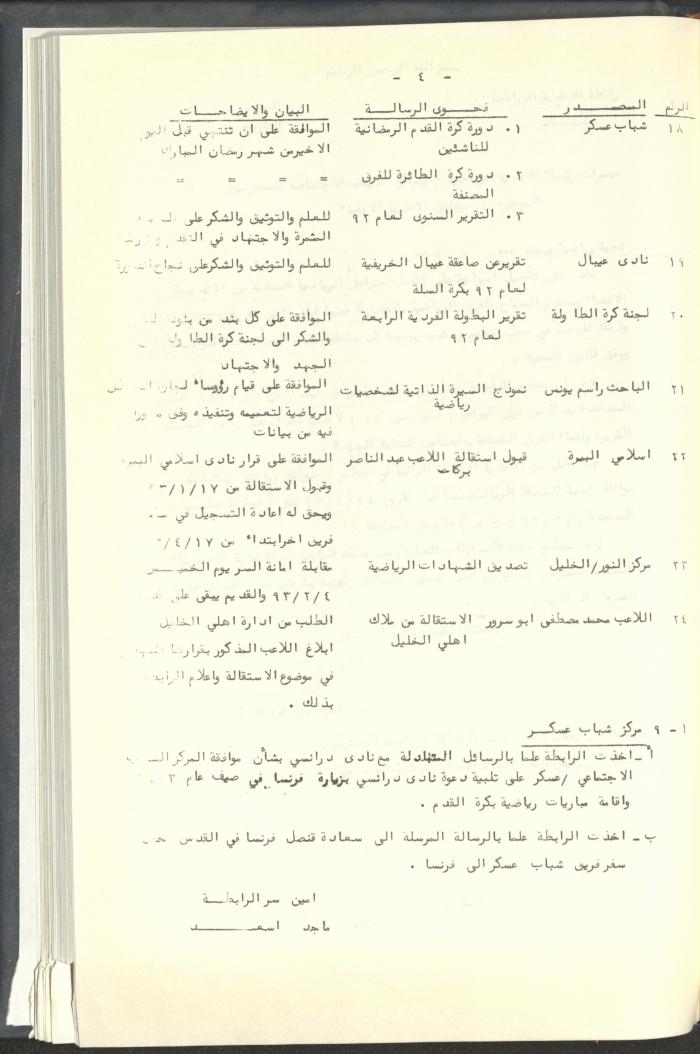 - ٤ -
الرقم المصدر فحوى الرسالة البيان والايضاحات
١٨ شباب عسكر ١. دورة كرة القدم الرمضانية الموافقة على ان تنتهي قبل اليوم
للناشئين الاخير من شهر رمضان المبارك
٢. دورة كرة الطائرة للفرق = = = =
المصنفة
٣. التقرير السنوى لعام ٩٢ للعلم والتوثيق والشكر على
المثمرة والاجتهاد في
١٩ نادى عيبال تقرير عن صاعقة عيبال الخريفية للعلم والتوثيق والشكر على نجاح
لعام ٩٢ بكرة السلة
٢٠ لجنة كرة الطاولة تقرير البطولة الفردية الرابعة الموافقة على كل بند من
لعام ٩٢ والشكر الى لجنة كرة
الجهد والاجتهاد
٢١ الباحث راسم يونس نموذج السيرة الذاتية لشخصيات الموافقة على قيام رؤوساء لجان
رياضية الرياضية لتعميمه وتنفيذه وفق
فيه من بيانات
٢٢ اسلامي البيرة قبول استقالة اللاعب عبد الناصر الموافقة على قرار نادى اسلامي
بركات وقبول الاستقالة من ٣/١/١٧
ويحق له اعادة التسجيل في
فريق اخر ابتداء من ٤/١٧/
٢٣ مركز النور/الخليل تصديق الشهادات الرياضية مقابلة امانة السر يوم
٩٣/٢/٤ والقديم يبقى على
٢٤ اللاعب محمد مصطفى ابو سرور الاستقالة من ملاك الطلب من ادارة اهلي الخليل
اهلي الخليل ابلاغ اللاعب المذكور بقرارها
في موضوع الاستقالة واعلام
بذلك .
١ - ٩ مركز شباب عسكر
أ - اخذت الرابطة علما بالرسائل المتبادلة مع نادى درانسي بشأن موافقة المركز
الاجتماعي /عسكر على تلبية دعوة نادى درانسي بزيارة فرنسا في صيف عام
واقامة مباريات رياضية بكرة القدم .
ب - اخذت الرابطة علما بالرسالة المرسلة الى سعادة قنصل فرنسا في القدس
سفر فريق شباب عسكر الى فرنسا .
امين سر الرابطة
ماجد اسعد